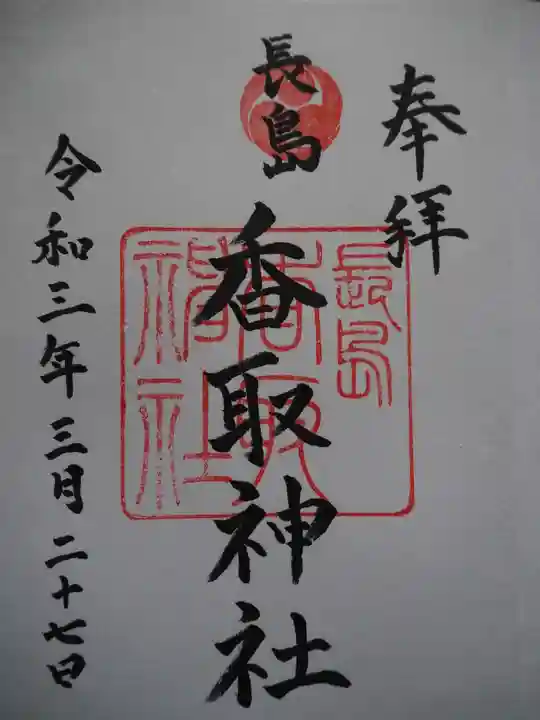 奉拝
長島
香取神社
長島
香取
神社
令和三年三月二十七日